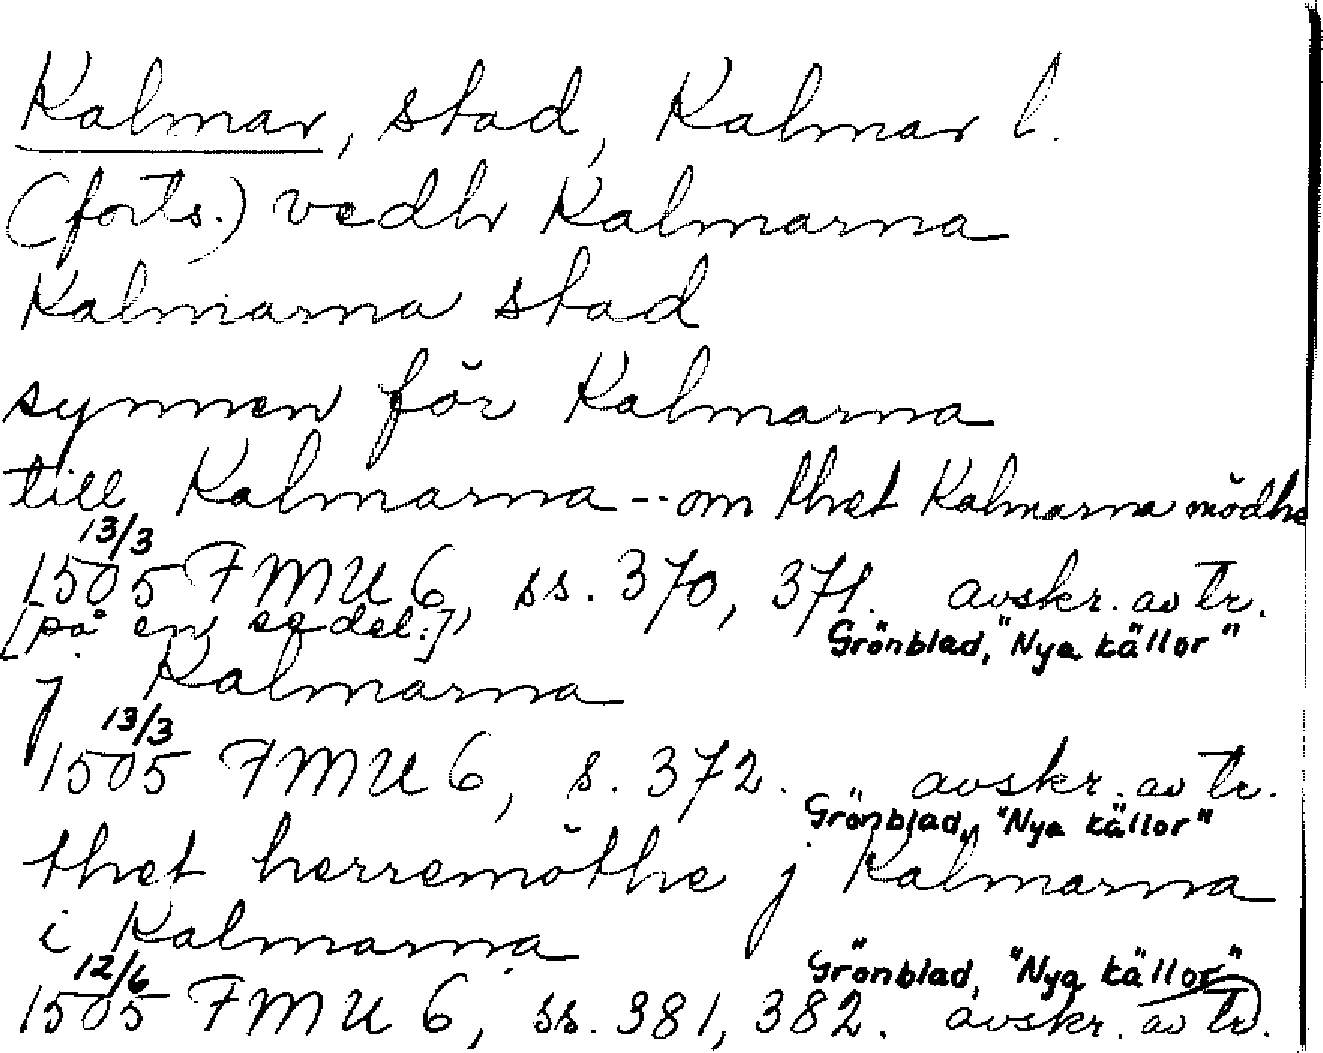 Kalmar, stad, Kalmar l.
(forts.) vedhr Kalmarna
Kalmarna stad
synnen för Kalmarna
till Kalmarna -- om thet Kalmarna mödhe
13/3
1505 FMU 6, ss. 370, 371. avskr. av tr.
[på en sedel:] Grönblad, "Nya källor"
j Kalmarna
13/3
1505 FMU 6, s. 372. avskr. av tr.
Grönblad, "Nya källor"
thet herremöthe j Kalmarna
i Kalmarna
12/6 Grönblad, "Nya källor"
1505 FMU 6, ss. 381, 382. avskr. av tr.